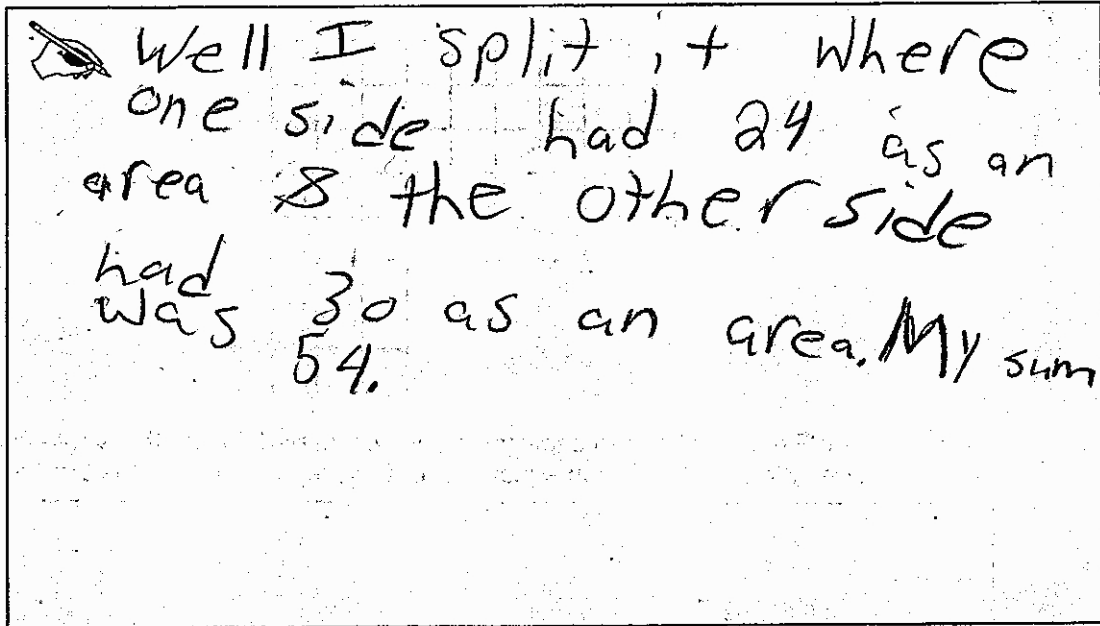 Well I split it where
one side had 24 as an
area & the other side
had 30 as an area. My sum
was 54.